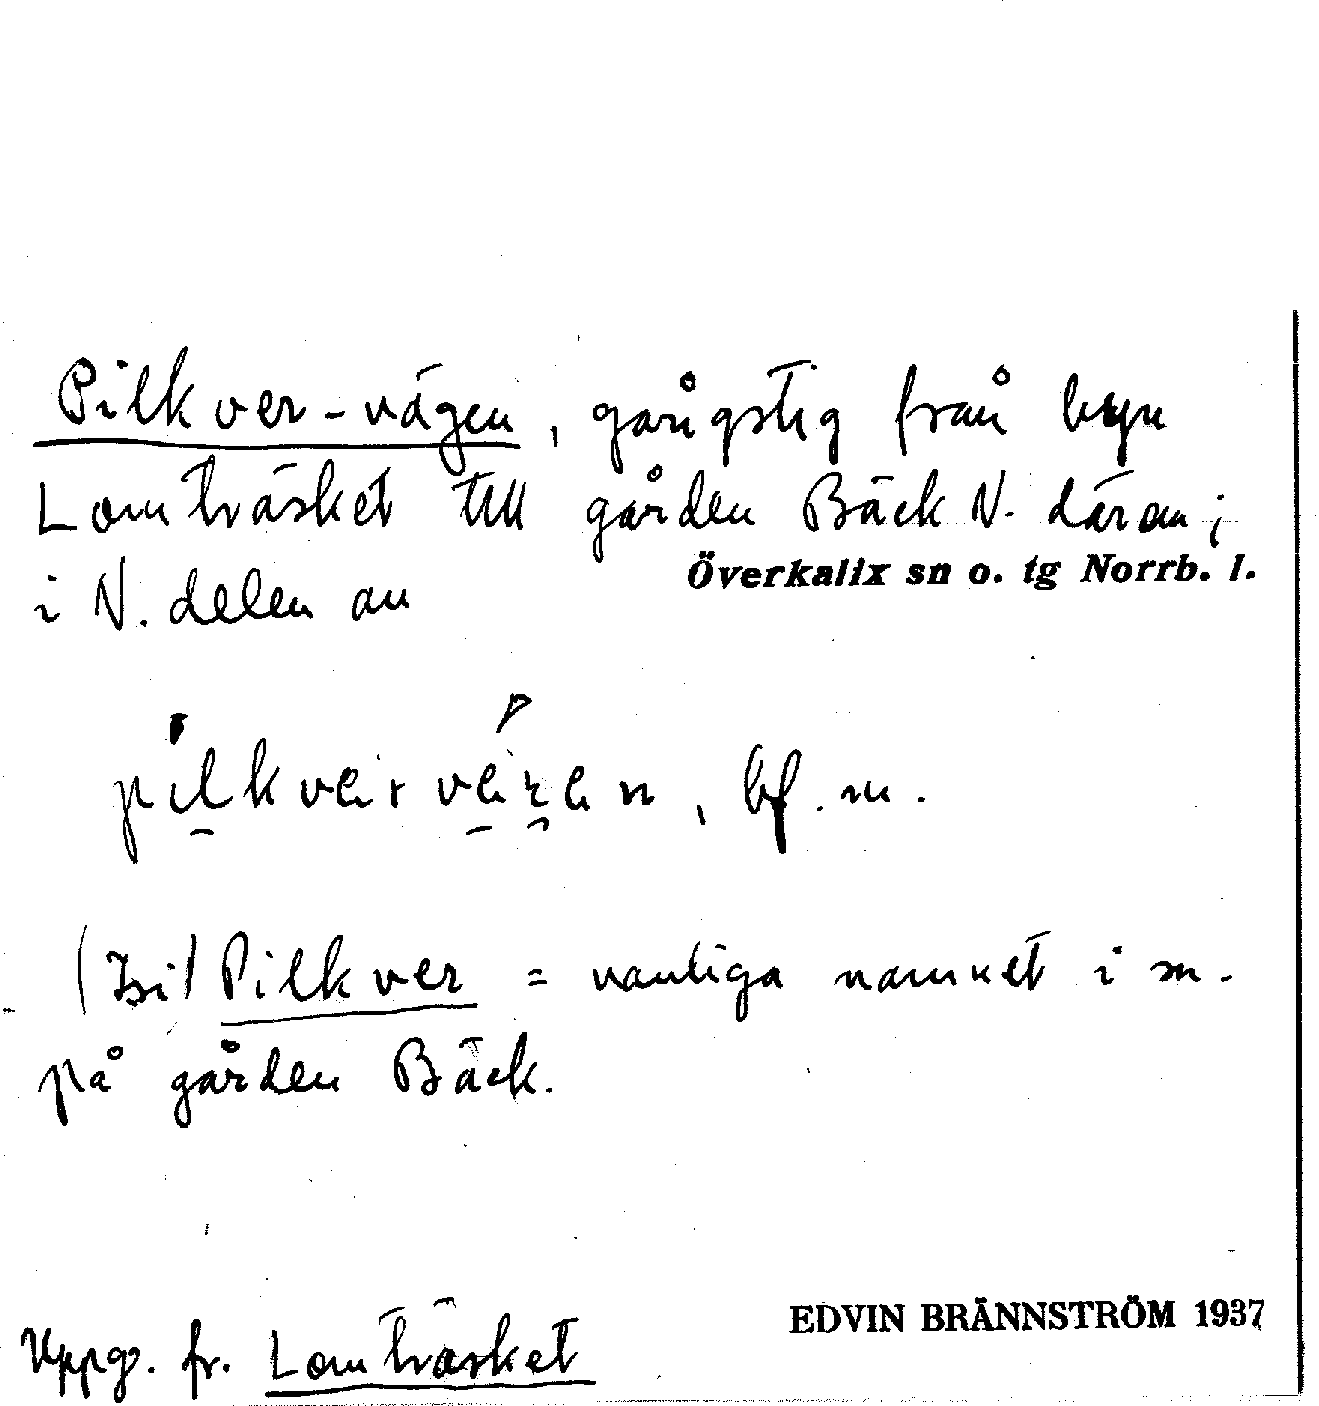 Pilkver-vägen, gångstig från byn
Lomträsket till gården Bäck N. därom;
i N. delen av
Överkalix sn o. tg Norrb. l.
pilkvervägen, bf. m.
Pilkver = vanliga namnet i m.
på gården Bäck.
EDVIN BRÄNNSTRÖM 1937
Uppg. fr. Lomträsket